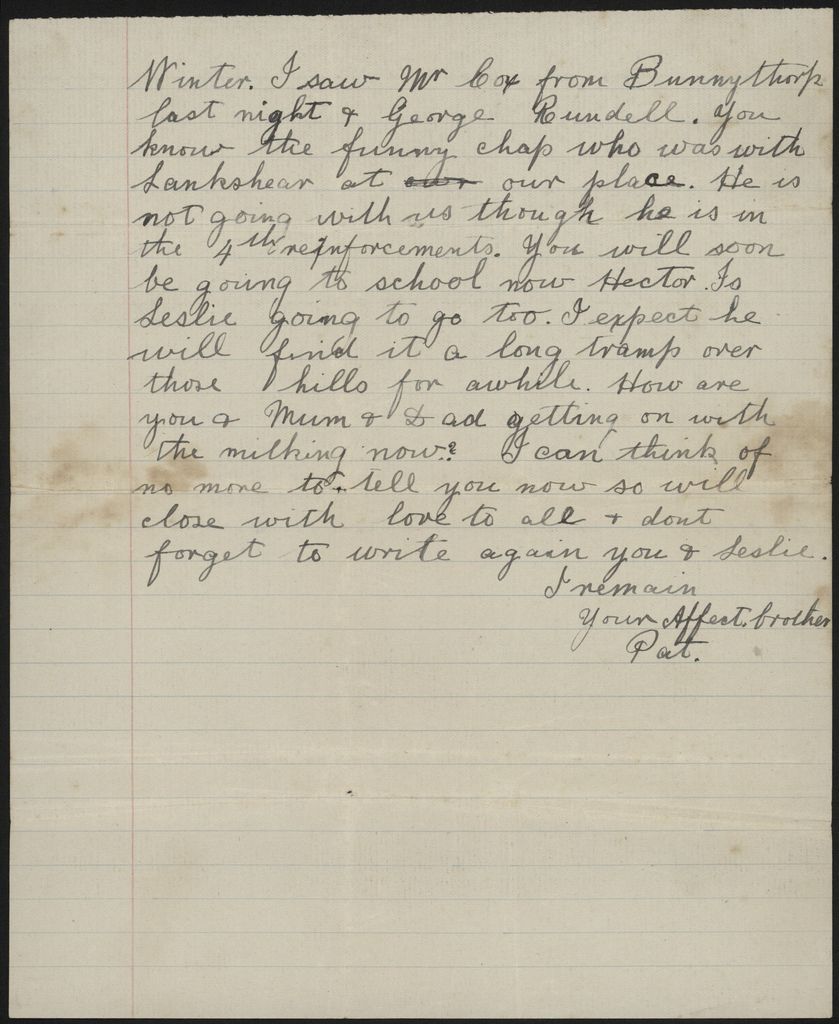 Winter. I saw Mr Cox from Bunnythorp
last night & George Rundell. You
know the funny chap who was with
Lankshear at our our place. He is
not going with us though he is in
the 4th reinforcements. You will soon
be going to school now Hector. Is
Leslie going to go too. I expect he
will find it a long tramp over
those hills for awhile. How are
you & Mum & Dad getting on with
the milking now? I can think of
no more to tell you now so will
close with love to all & dont
forget to write again you & Leslie.
I remain
Your Affect. brother
Pat.